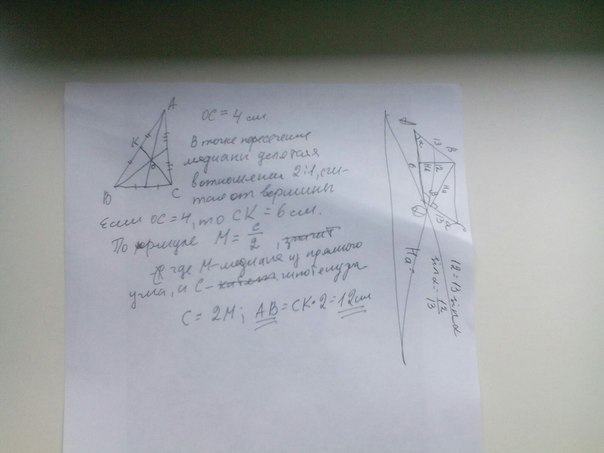 A
K
O
B
C
OC = 4 см
В точке пересечение
медианы делятся
в отношении 2:1, счи-
тая от вершины
Если OC=4, то CK = 6 см.
По формуле M = c/2,
где M - медиана из прямого
угла, а C - гипотенуза
C = 2M; AB = CK·2 = 12 см
A
13
B
12
6
C
12 = 13 sin α
sin α = 12/13